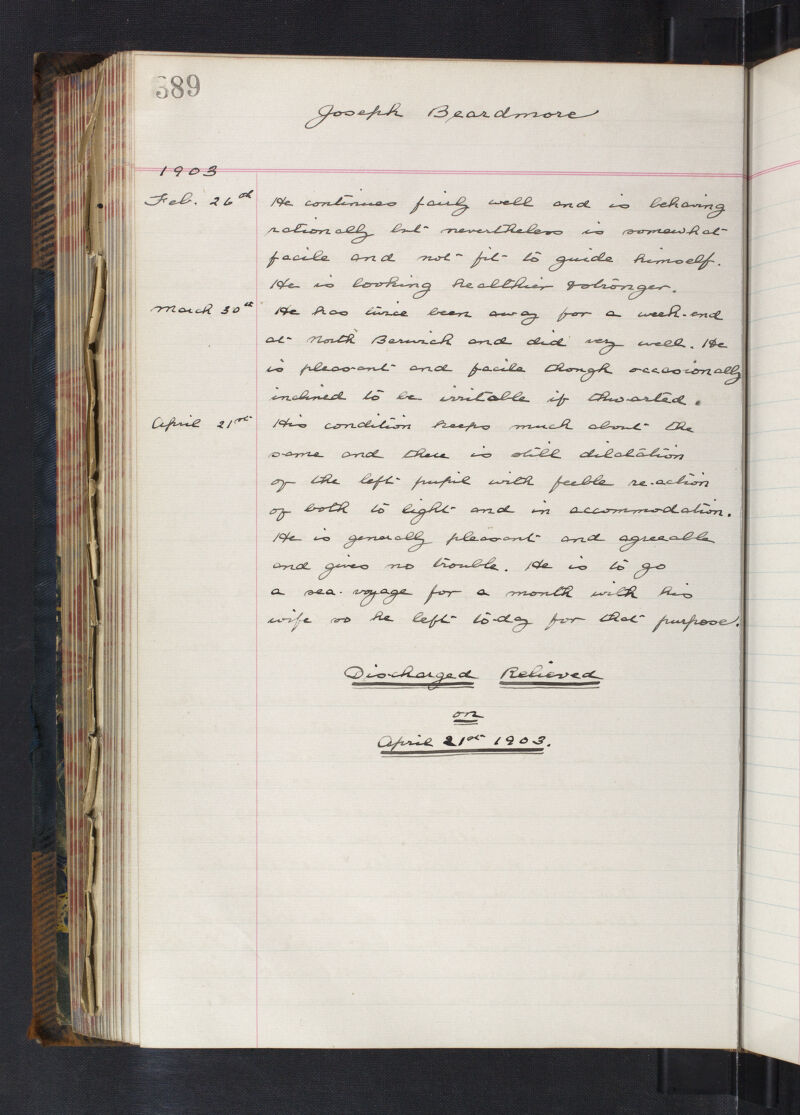 389
Joseph Beardmore
1903
Feb. 26th He continues fairly well and is behaving
rationally but nevertheless is somewhat
facile and not fit to guide himself.
He is looking healthier & stronger.
March 30th He has twice been away for a week-end
at North Berwick and did very well. He
is pleasant and facile though occasionally
inclined to be irritable if thwarted.
April 21st His condition keeps much about the
same and there is still dilatation
of the left pupil with feeble re-action
of both to light and in accommodation.
He is generally pleasant and agreeable
and gives no trouble. He is to go
a sea-voyage for a month with his
wife so he left to-day for that purpose.
Discharged Relieved
on
April 21st 1903.